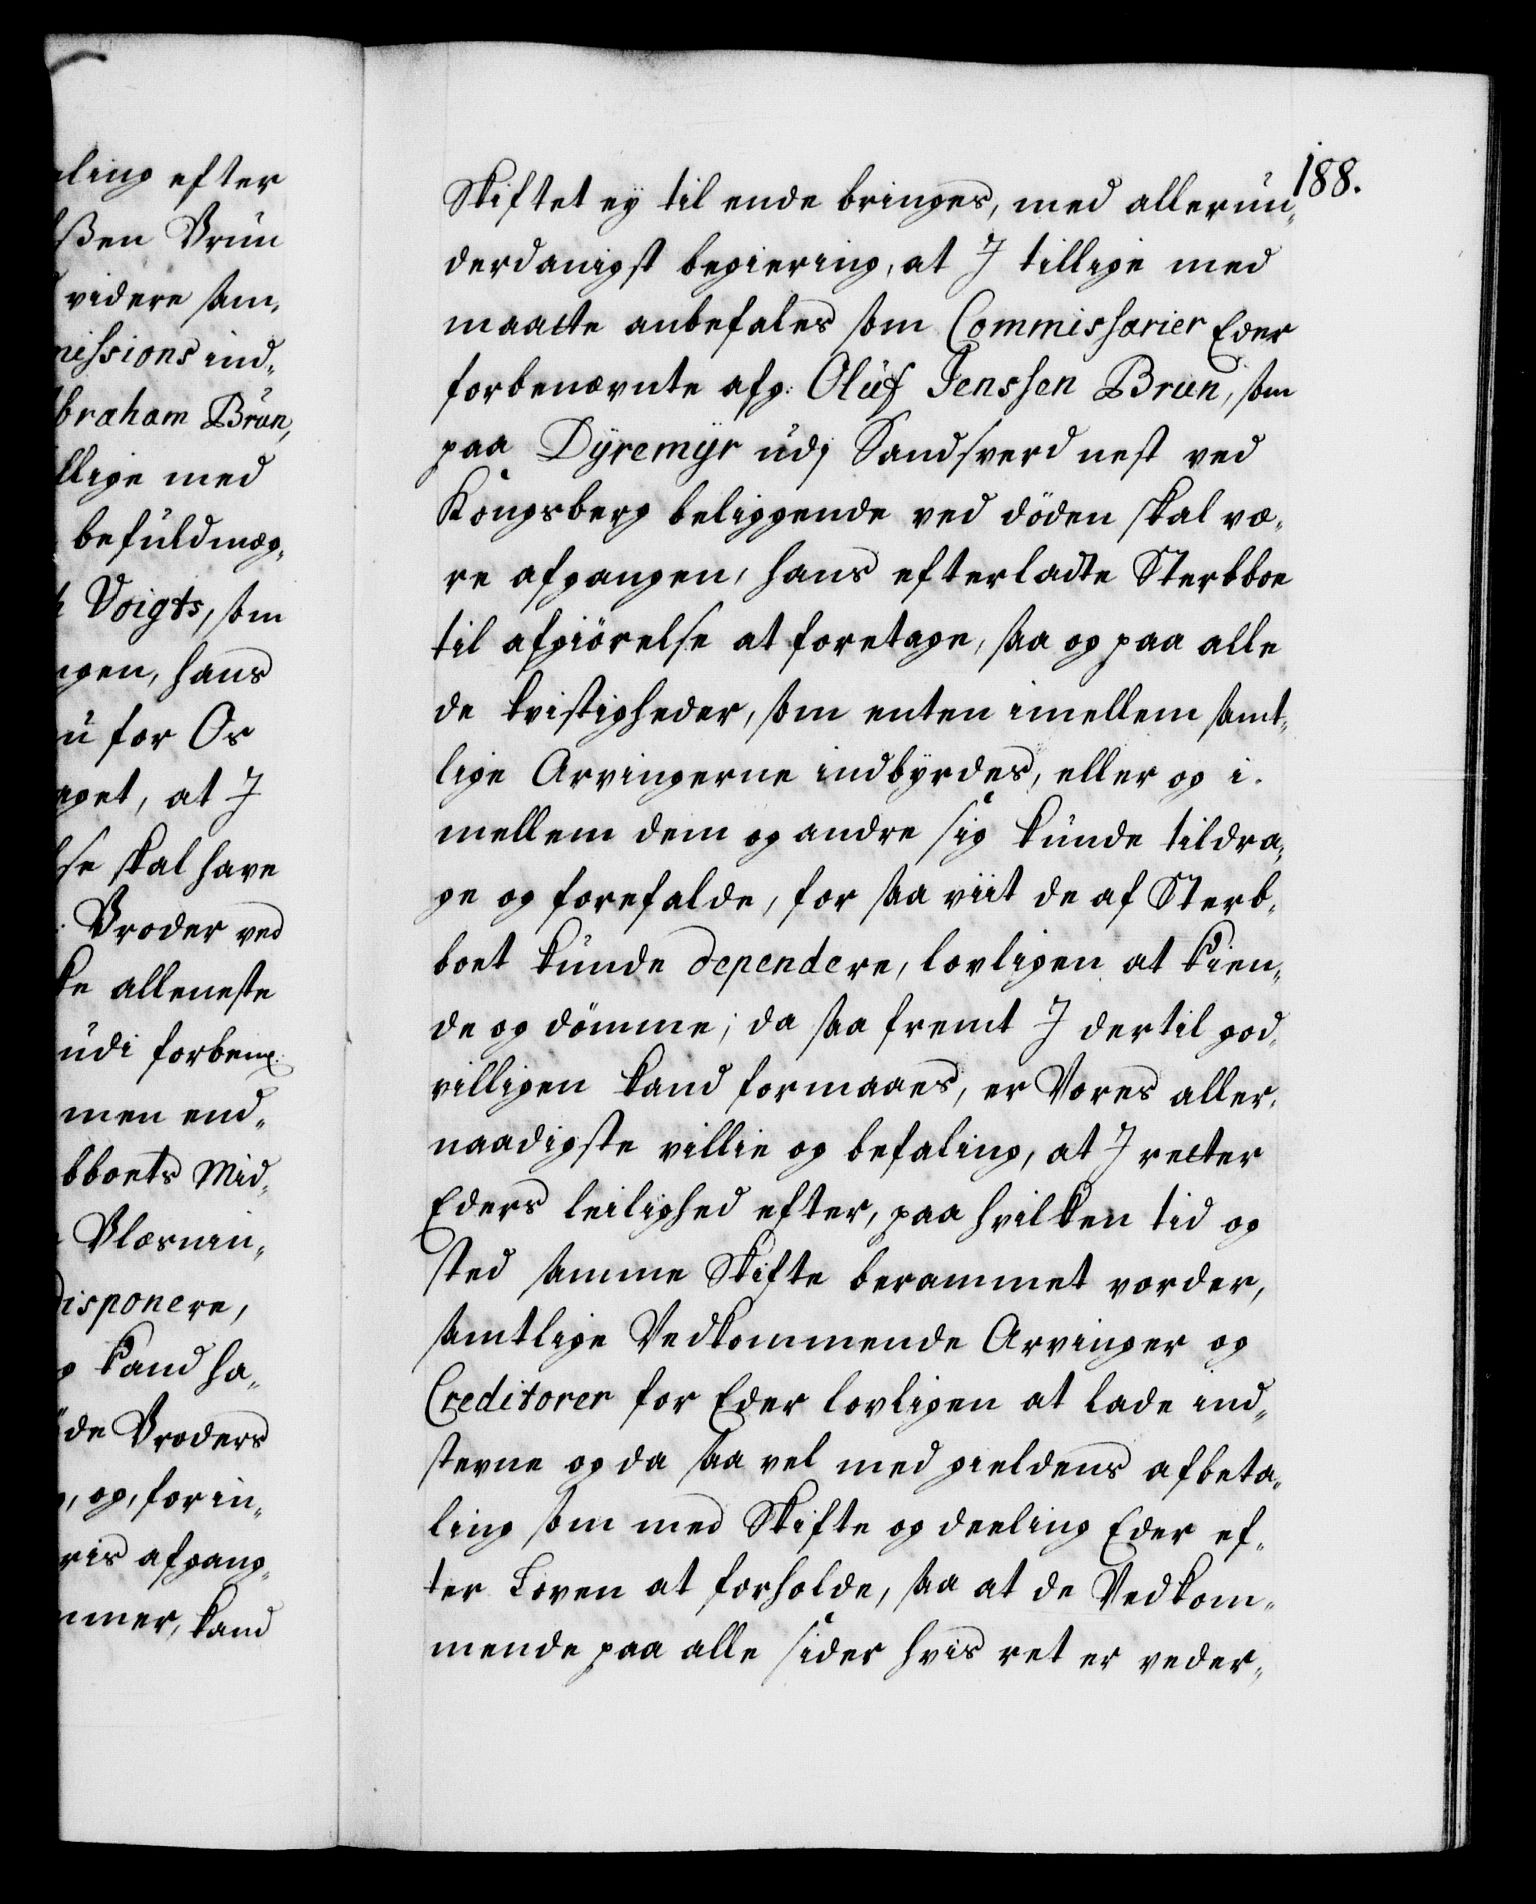 ling efter
ßen Brun
videre som
missions ind-
braham Brun,
llige med
befuldmæg-
Voigts, som
ngen, hans
u for Os
aget, at J
lse skal have
Broder ved
ke alleneste
udi forben:
men end-
bboets Mid-
Blæsnin-
disponere,
kand ha-
de Broders
, og, for in-
ris afgang,
mmer, kand
188.
Skiftet ey til ende bringes, med allerun-
derdanigst begiering, at J tillige med
maatte anbefales som Commissarier Eder
forbenævnte afg: Oluf Jenssen Brun, som
paa Dyremyr udj Sandsverd nest ved
Kongsberg beliggende ved döden skal væ-
re afgangen, hans efterladte Sterbboe
til afgiörelse at foretage, saa og paa alle
de tvistigheder, som enten imellem samt-
lige Arvingerne indbyrdes, eller og i-
mellem dem og andre sig kunde tildra-
ge og forefalde, for saa viit de af Sterb-
boet kunde dependere, lovligen at kien-
de og dömme; da saa fremt J dertil god-
villigen kand formaaes, er Vores aller-
naadigste villie og befaling, at J retter
Eders leilighed efter, paa hvilken tid og
sted samme Skifte berammet vorder,
samtlige Vedkommende Arvinger og
Creditorer for Eder lovligen at lade ind-
stevne og da saa vel med gieldens afbeta-
ling som med Skifte og deeling Eder ef-
ter Loven at forholde, saa at de Vedkom-
mende paa alle sider hvis ret er veder-